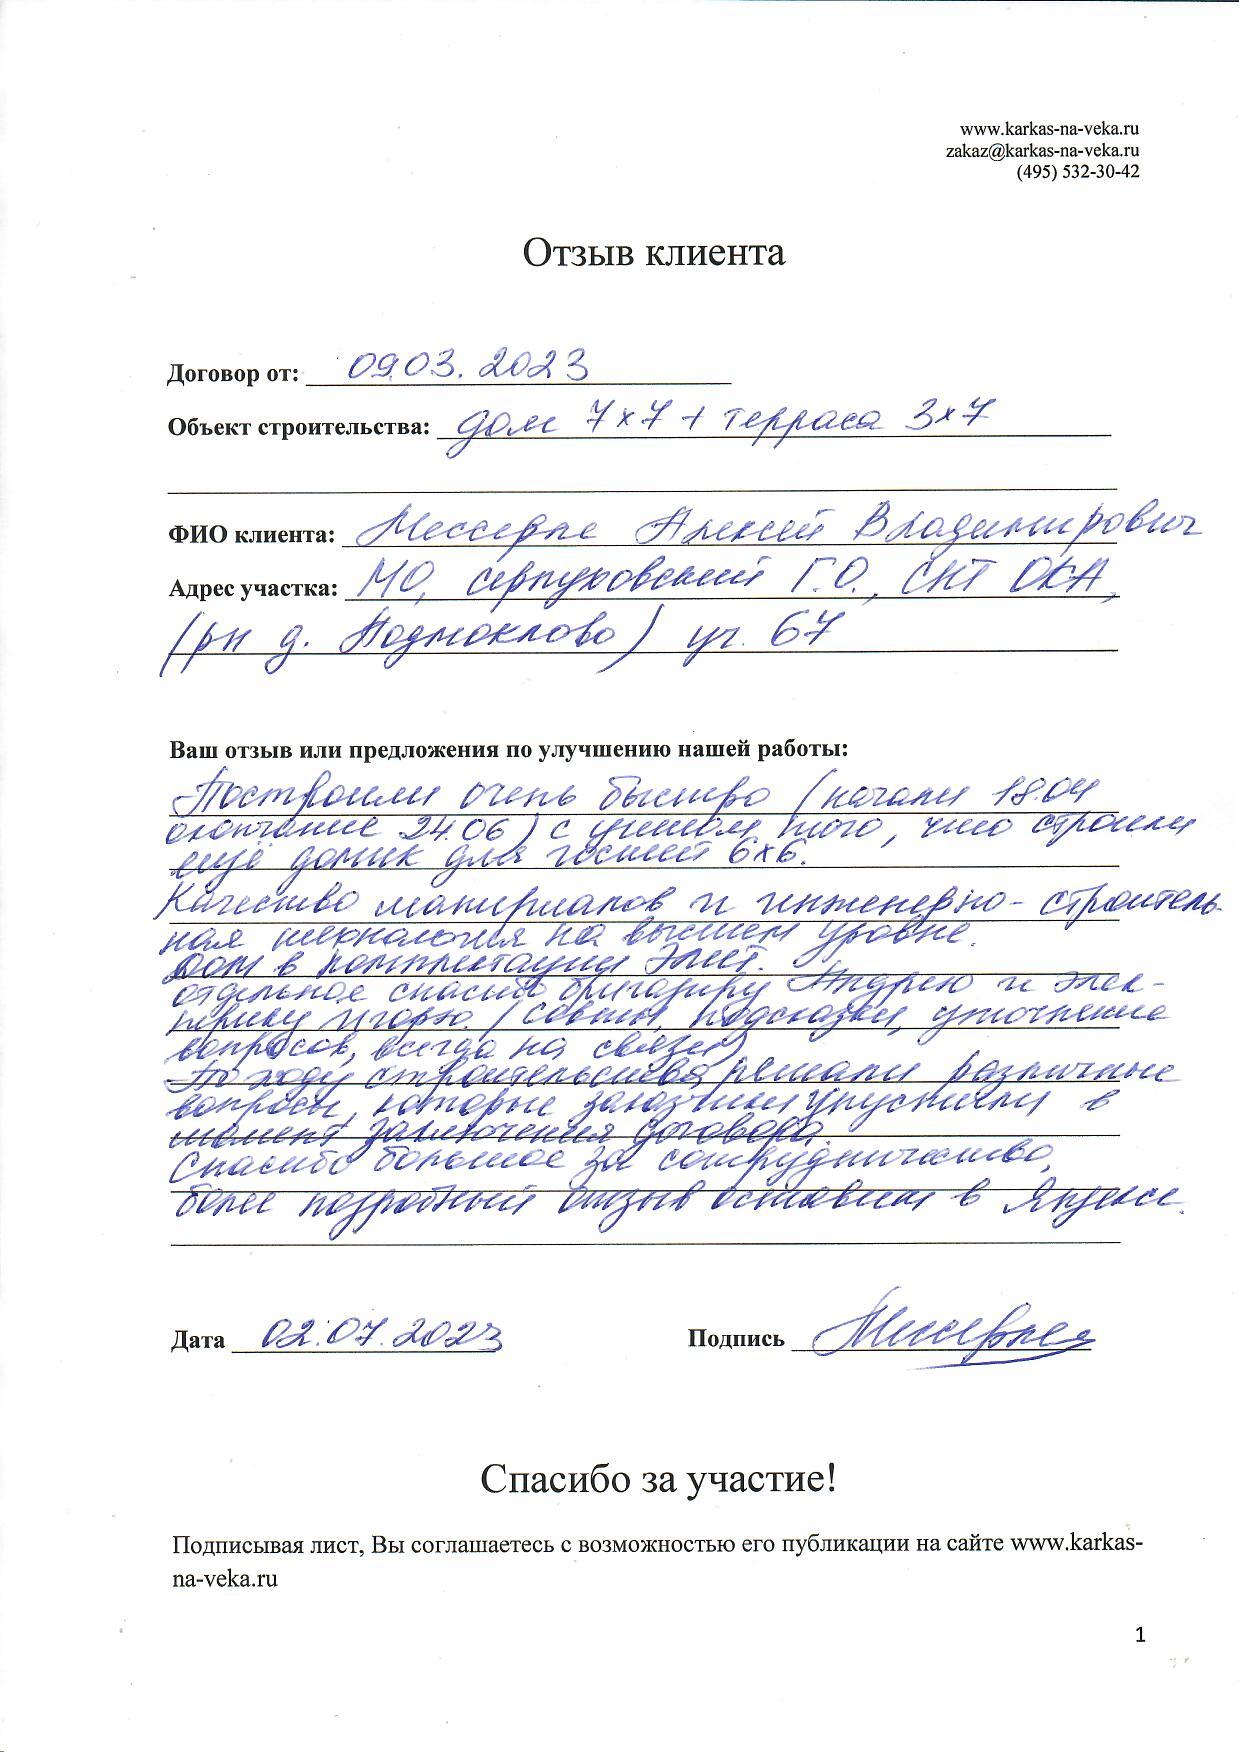 www.karkas-na-veka.ru
zakaz@karkas-na-veka.ru
(495) 532-30-42
Отзыв клиента
Договор от: 09.03.2023
Объект строительства: дом 7х7 + терраса 3х7
ФИО клиента: Мессерле Алексей Владимирович
Адрес участка: МО, серпуховский Г.О., СНТ ОКА,
(рн д. Подмоклово) уч. 67
Ваш отзыв или предложения по улучшению нашей работы:
Построили очень быстро (начали 18.04
окончание 24.06) с учетом того, что строили
ещё домик для гостей 6х6.
Качество материалов и инженерно-строитель-
ная технология на высшем уровне.
Дом в комплектации Элит.
отдельное спасибо бригадиру Андрею и элек-
трику Игорю. (советы, подсказки, уточнение
вопросов, всегда на связи)
По ходу строительства решали различные
вопросы, которые заказчики упустили в
момент заключения договора.
Спасибо большое за сотрудничество,
более подробный отзыв оставим в Яндексе.
Дата 02.07.2023
Подпись
Спасибо за участие!
Подписывая лист, Вы соглашаетесь с возможностью его публикации на сайте www.karkas-
na-veka.ru
1